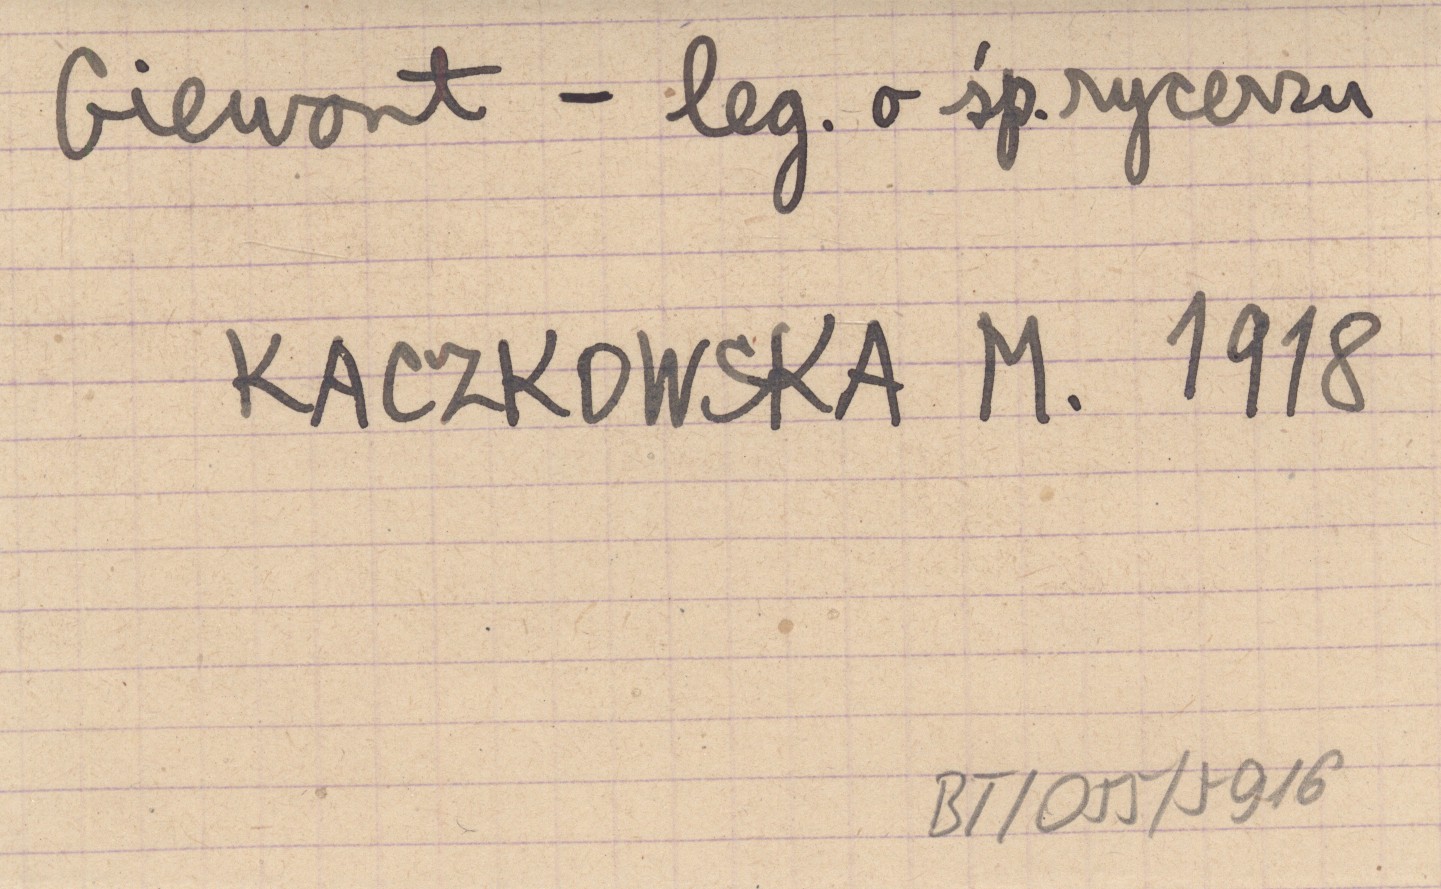 Giewont - leg. o śp. rycerzu
KACZKOWSKA M. 1918
BT/055/5916